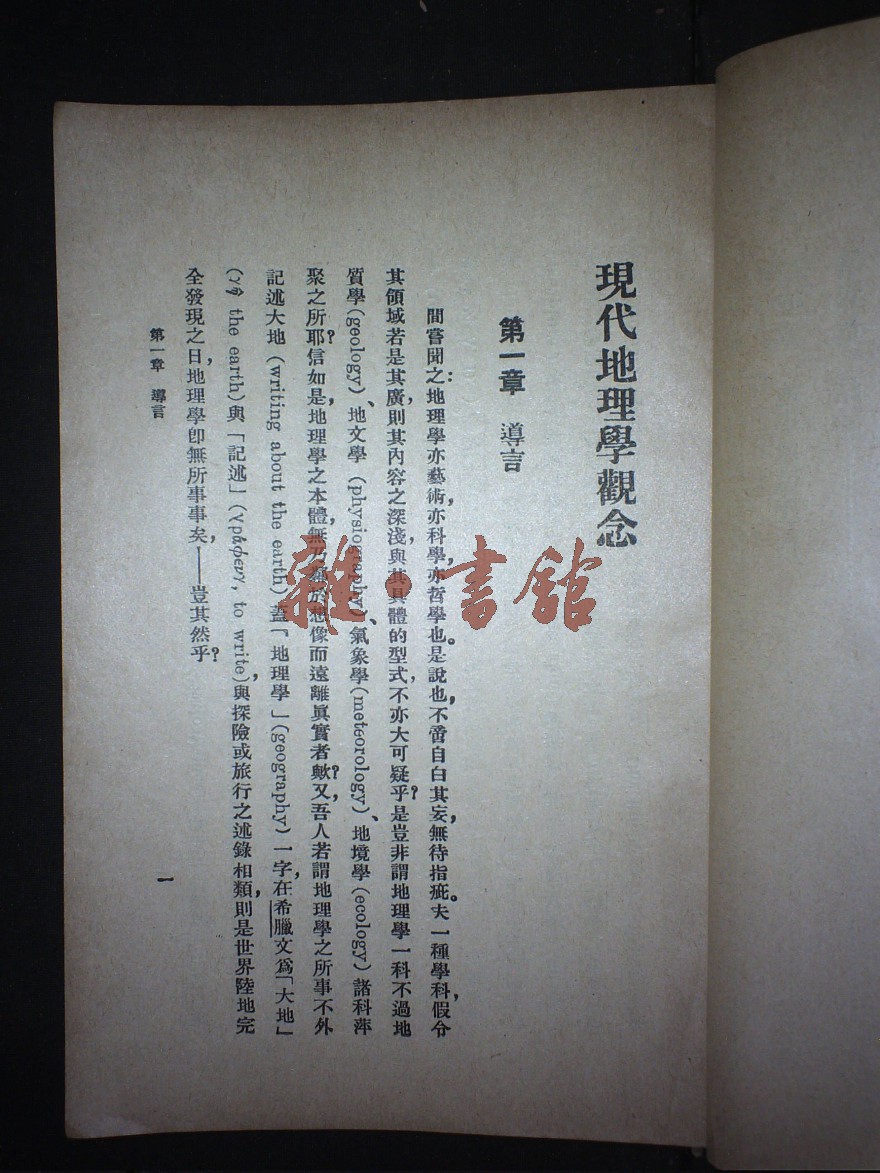 現代地理學觀念
第一章 導言
間嘗聞之：地理學亦藝術，亦科學，亦哲學也。是說也，不啻自白其妄，無待指疵。夫一種學科，假令
其領域若是其廣，則其內容之深淺，與其具體的型式，不亦大可疑乎？是豈非謂地理學一科不過地
質學(geology)、地文學(physiography)、氣象學(meteorology)、地境學(ecology)諸科萃
聚之所耶？信如是，地理學之本體，無乃於想像而遠離眞實者歟？又吾人若謂地理學之所事，不外
記述大地(writing about the earth)蓋「地理學」(geography)一字，在希臘文爲「大地」
(the earth)與「記述」(to write)，與探險或旅行之述錄相類，則是世界陸地完
全發現之日，地理學卽無所事事矣，——豈其然乎？
第一章 導言
一
雜·書館